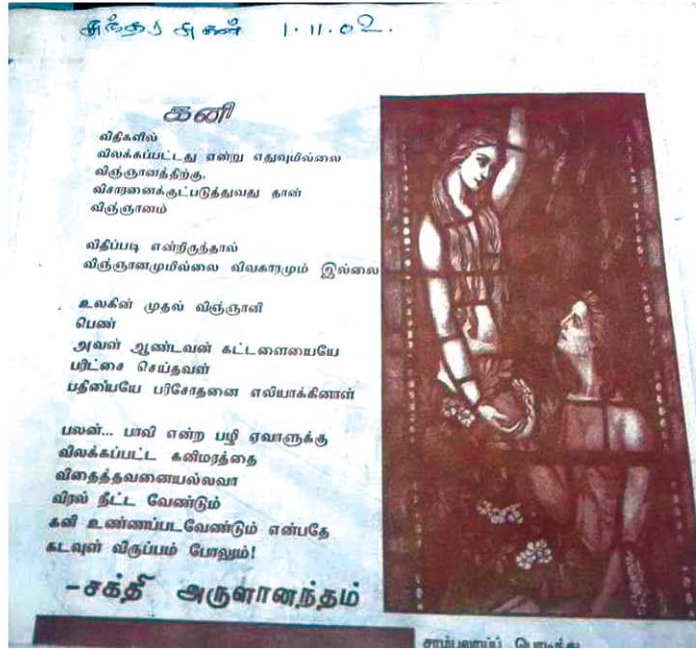 சுந்தர சுகன் 1.11.02.
கனி
விதிகளில்
விலக்கப்பட்டது என்று எதுவுமில்லை
விஞ்ஞானத்திற்கு.
விசாரனைக்குட்படுத்துவது தான்
விஞ்ஞானம்
விதிப்படி என்றிருந்தால்
விஞ்ஞானமுமில்லை விவகாரமும் இல்லை
உலகின் முதல் விஞ்ஞானி
பெண்
அவள் ஆண்டவன் கட்டளையையே
பரிட்சை செய்தவள்
பதியையே பரிசோதனை எலியாக்கினாள்
பலன்... பாவி என்ற பழி ஏவாளுக்கு
விலக்கப்பட்ட கனிமரத்தை
விதைத்தவனையல்லவா
விரல் நீட்ட வேண்டும்
கனி உண்ணப்படவேண்டும் என்பதே
கடவுள் விருப்பம் போலும்!
-சக்தி அருளானந்தம்